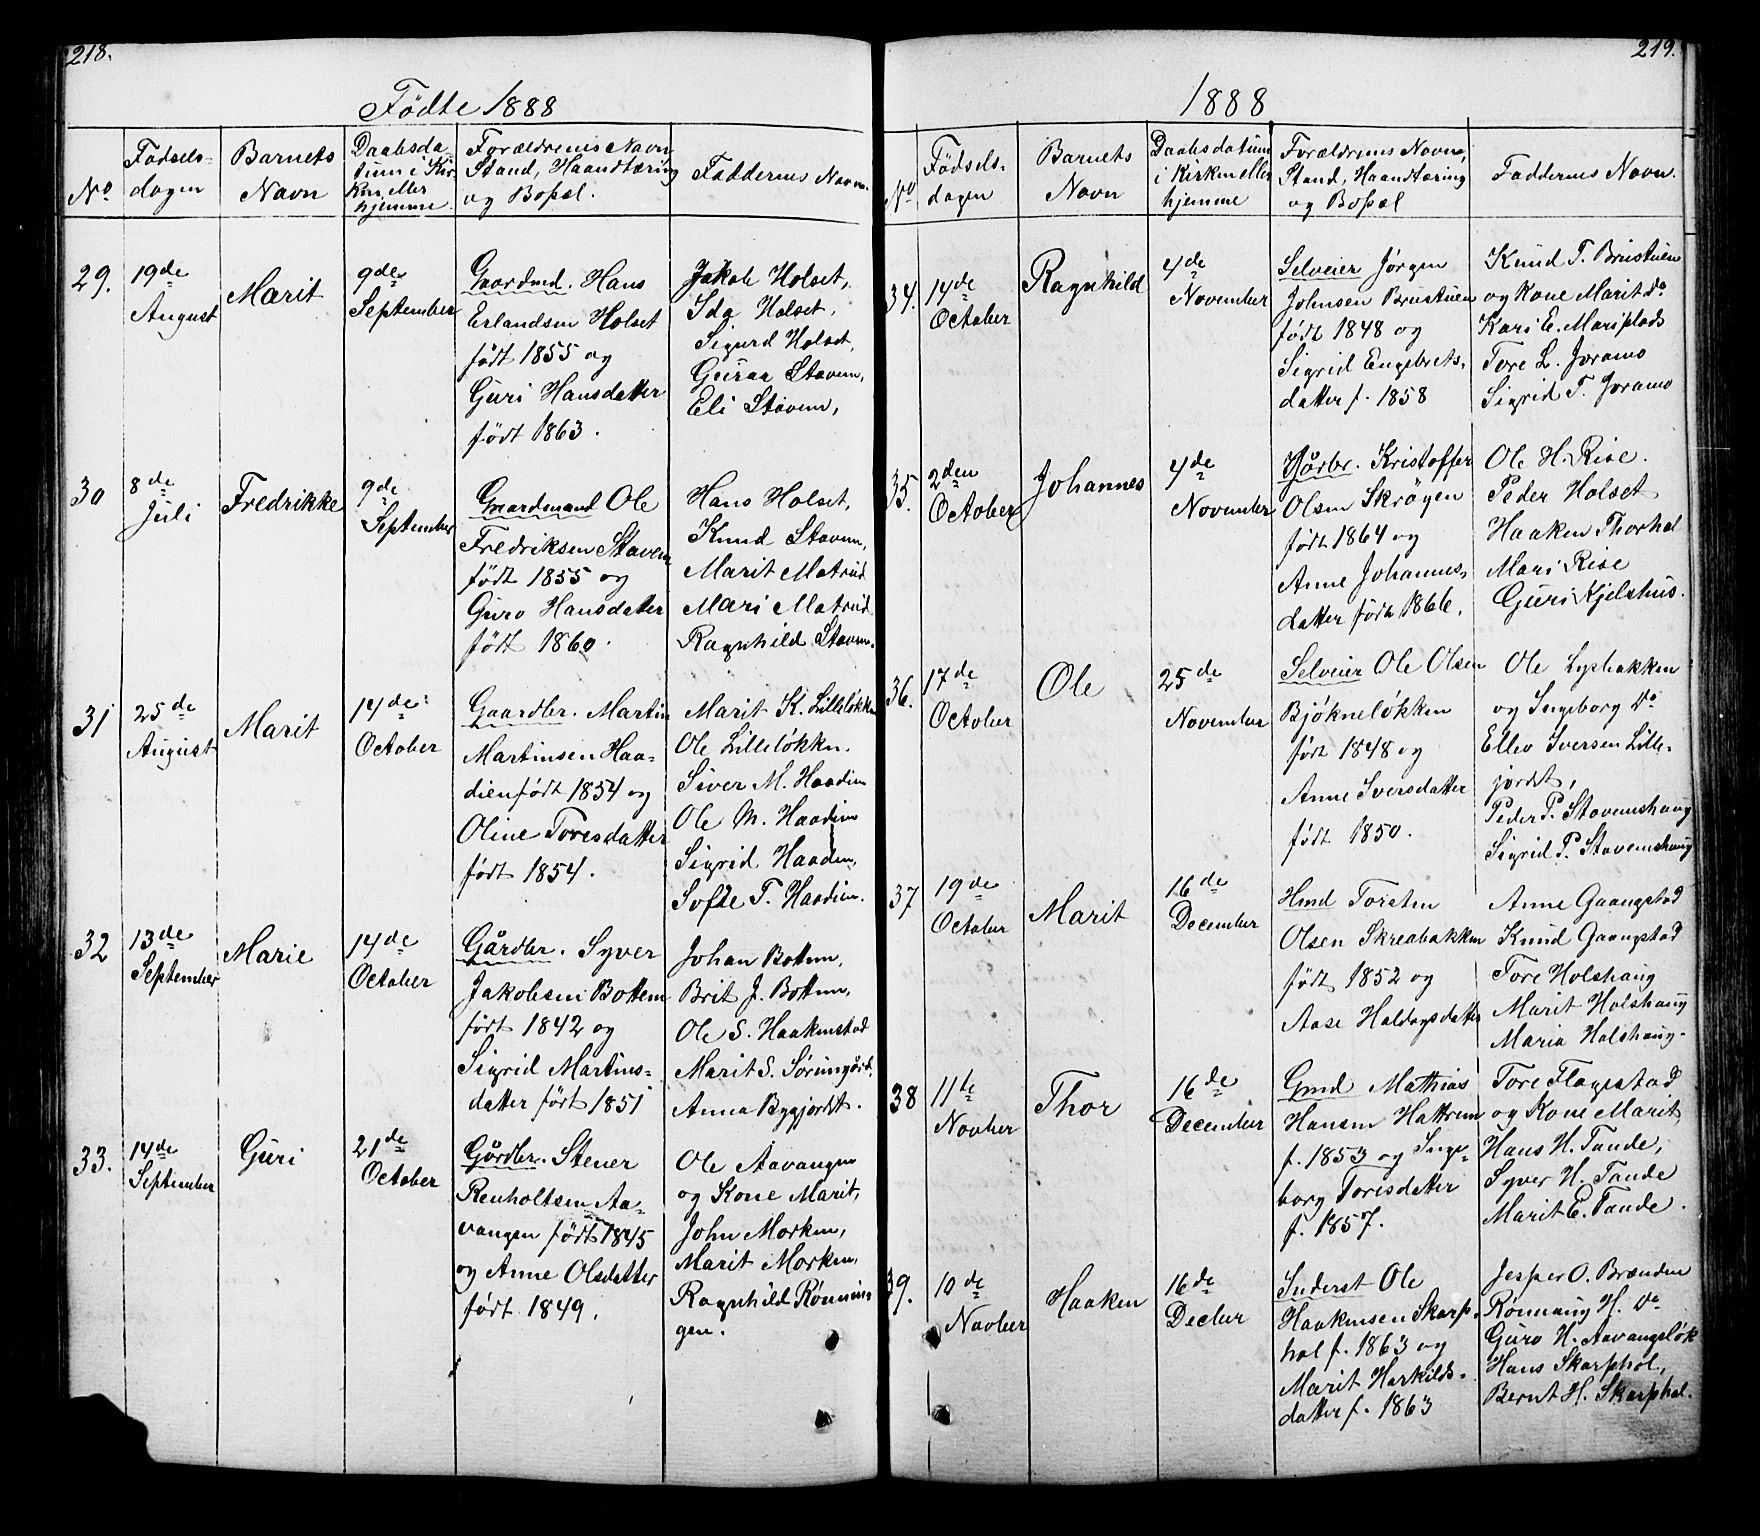 218.
Fødte 1888
No
Fødsels-
dagen
Barnets
Navn
Daabsda-
tum i Kir-
ken eller
hjemme.
Forældrenes Navn
Stand, Haandtæring
og Bopæl.
Faddernes Navn.
29.
19de
August
Marit
9de
September
Gaardmd. Hans
Erlandsen Holset
født 1855 og
Guri Hansdatter
født 1863.
Jakob Holset,
Ida Holset,
Sigurd Holset,
Guraa Stavem,
Eli Stavem,
30
8de
Juli
Fredrikke
9de
September
Gaardmand Ole
Fredriksen Stavem
født 1855 og
Guro Hansdatter
født 1860.
Hans Holset,
Knud Stavem,
Marit Matrud
Mari Matrud
Ragnhild Stavem.
31
25de
August
Marit
14de
October
Gaardbr. Martin
Martinsen Haa-
dien født 1854 og
Oline Toresdatter
født 1854.
Marit K. Lilleløkken
Ole Lilleløkken.
Siver M. Haadien
Ole M. Haadien
Sigrid Haadien,
Sofie T. Haadien.
32
13de
September
Marie
14de
October
Gårdbr. Syver
Jakobsen Bottem
født 1842 og
Sigrid Martins-
datter født 1851
Johan Bottem,
Brit J. Bottem,
Ole S. Haakenstad
Marit S. Sørumgård,
Anna Byggjordet.
33.
14de
September
Guri
21de
October
Gårdbr. Stener
Renholtsen Aa-
vangen født 1845
og Anne Olsdatter
født 1849.
Ole Aavangen
og Kone Marit,
John Morken,
Marit Morken,
Ragnhild Rønnin-
gen.
219.
1888
No
Fødsels-
dagen
Barnets
Navn
Daabsdatum
i Kirken eller
hjemme
Forældrenes Navn,
Stand, Haandtæring
og Bopæl
Faddernes Navn.
34.
14de
October
Ragnhild
4de
November
Selveier Jørgen
Johnsen Brustuen
født 1848 og
Sigrid Engebrets-
datter f. 1858
Knud T. Brustuen
og Kone Marit Do
Kari E. Mariplads
Tore L. Joramo
Sigrid T. Joramo
35.
2den
October
Johannes
4de
November
Gårbr. Kristoffer
Olsen Skrøgen
født 1864 og
Anne Johannes-
datter født 1866.
Ole H. Rise.
Peder Holset
Haaken Thorhol
Mari Rise
Guri Kjelshus.
36.
17de
October
Ole
25de
November
Selveier Ole Olsen
Bjøkneløkken
født 1848 og
Anne Iversdatter
født 1850.
Ole Lyshakken
og Ingeborg Do
Ellev Iversen Lille-
jordet,
Peder P. Stavemshaug
Sigrid P. Stavemshaug
37
19de
October
Marit
16de
December
Hmd Torsten
Olsen Skreabakken
født 1852 og
Aase Haldogsdatter
Anne Gaangstad
Knud Gaangstad
Tore Holshaug
Marit Holshaug
Maria Holshaug.
38
11te
Novber
Thor
16de
December
Gmd Mathias
Hansen Hattrem
f. 1853 og Inge-
borg Toresdatter
f. 1857.
Tore Flagestad
og Kone Marit,
Hans H. Tande,
Syver H. Tande
Marit E. Tande.
39.
10de
Novber
Haaken
16de
Decbur
Inderst Ole
Haakensen Skarp-
hol f. 1863 og
Marit Harkilds-
datter f. 1863
Jesper O. Brænden
Rønnaug H. Do
Guro H. Aavangsløk
Hans Skarphol,
Bernt H. Skarphol.